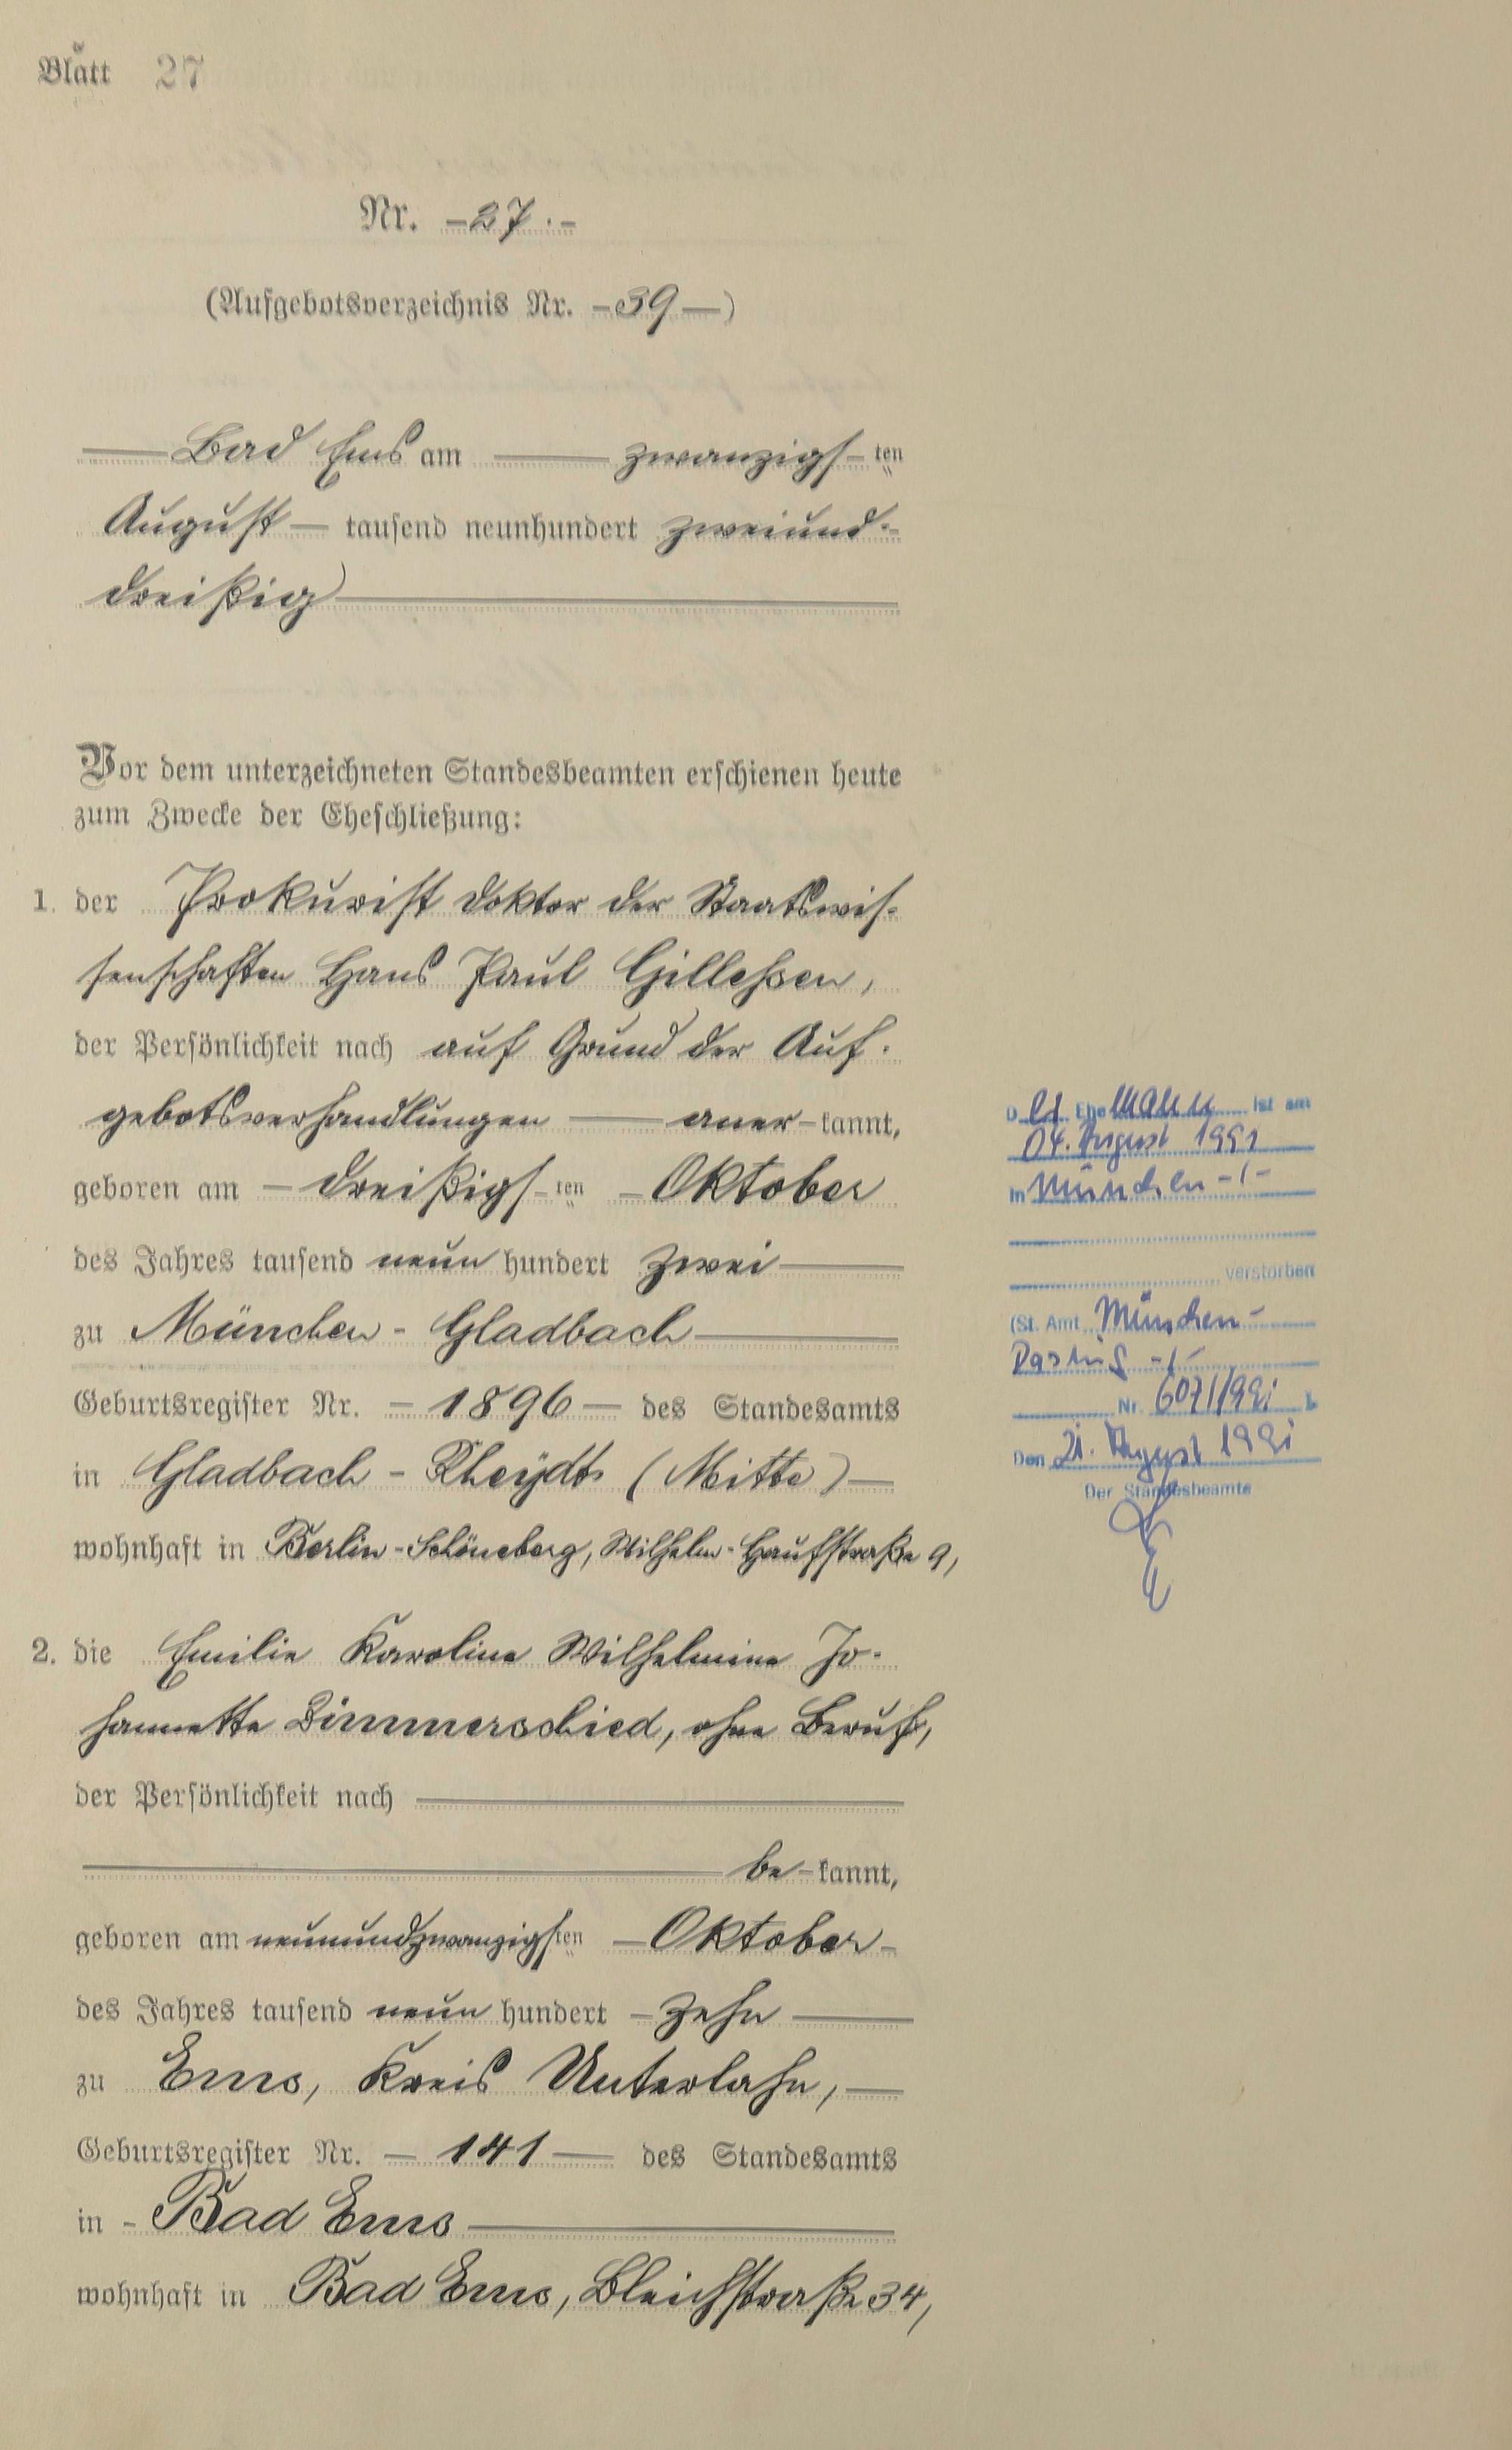 Blatt 27
Nr. -27.-
(Aufgebotsverzeichnis Nr. -39-)
Bad Ems am zwanzigs-ten
August- tausend neunhundert zweiund-
dreißig
Vor dem unterzeichneten Standesbeamten erschienen heute
zum Zwecke der Eheschließung:
1. der Prokurist Doktor der Staatswis-
senschaften Hans Paul Gillessen,
der Persönlichkeit nach auf Grund der Auf-
gebotsverhandlungen aner-kannt,
geboren am - dreißigs-ten - Oktober
des Jahres tausend neun hundert zwei
zu München-Gladbach
Geburtsregister Nr. - 1896 - des Standesamts
in Gladbach-Rheydt (Mitte)
wohnhaft in Berlin-Schöneberg, Wilhelm-Hauffstraße 9,
2. die Emilie Karoline Wilhelmine Jo-
hannette Dimmerschied, ohne Beruf,
der Persönlichkeit nach
be-kannt,
geboren am neunundzwanzigsten - Oktober -
des Jahres tausend neun hundert - zehn
zu Ems, Kreis Unterlahn,
Geburtsregister Nr. - 141 - des Standesamts
in - Bad Ems
wohnhaft in Bad Ems, Bleichstraße 34,
D er Ehemann ist am
04. August 1991
in München -/-
verstorben
(St. Amt München-
Pasing -/-
Nr. 607/1991
Den 21. August 1991
Der Standesbeamte